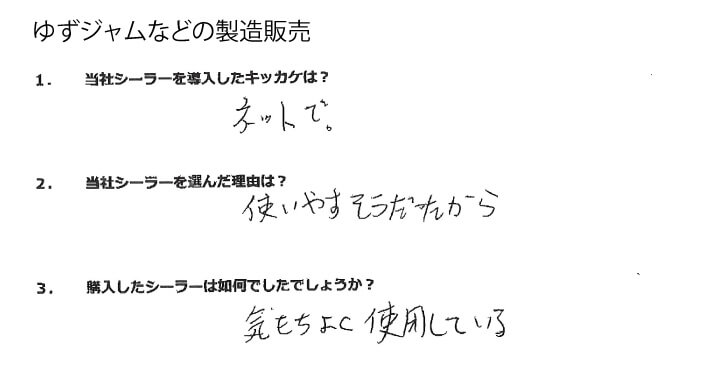 ゆずジャムなどの製造販売
1. 当社シーラーを導入したキッカケは？
ネットで。
2. 当社シーラーを選んだ理由は？
使いやすそうだったから
3. 購入したシーラーは如何でしたでしょうか？
気もちよく使用している